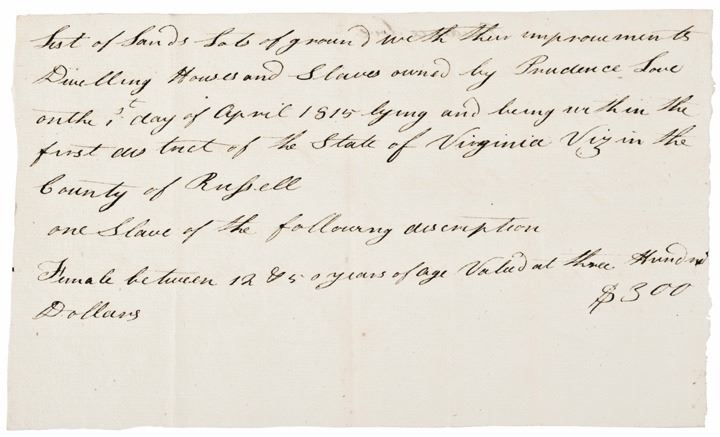 List of Lands Lots of ground with their improvements
Dwelling Houses and Slaves owned by Prudence Love
on the 1st day of April 1815 lying and being within the
first district of the State of Virginia Viz in the
County of Russell
one Slave of the following discription
Female between 12 & 50 years of age Valued at three Hundred
$300
Dollars